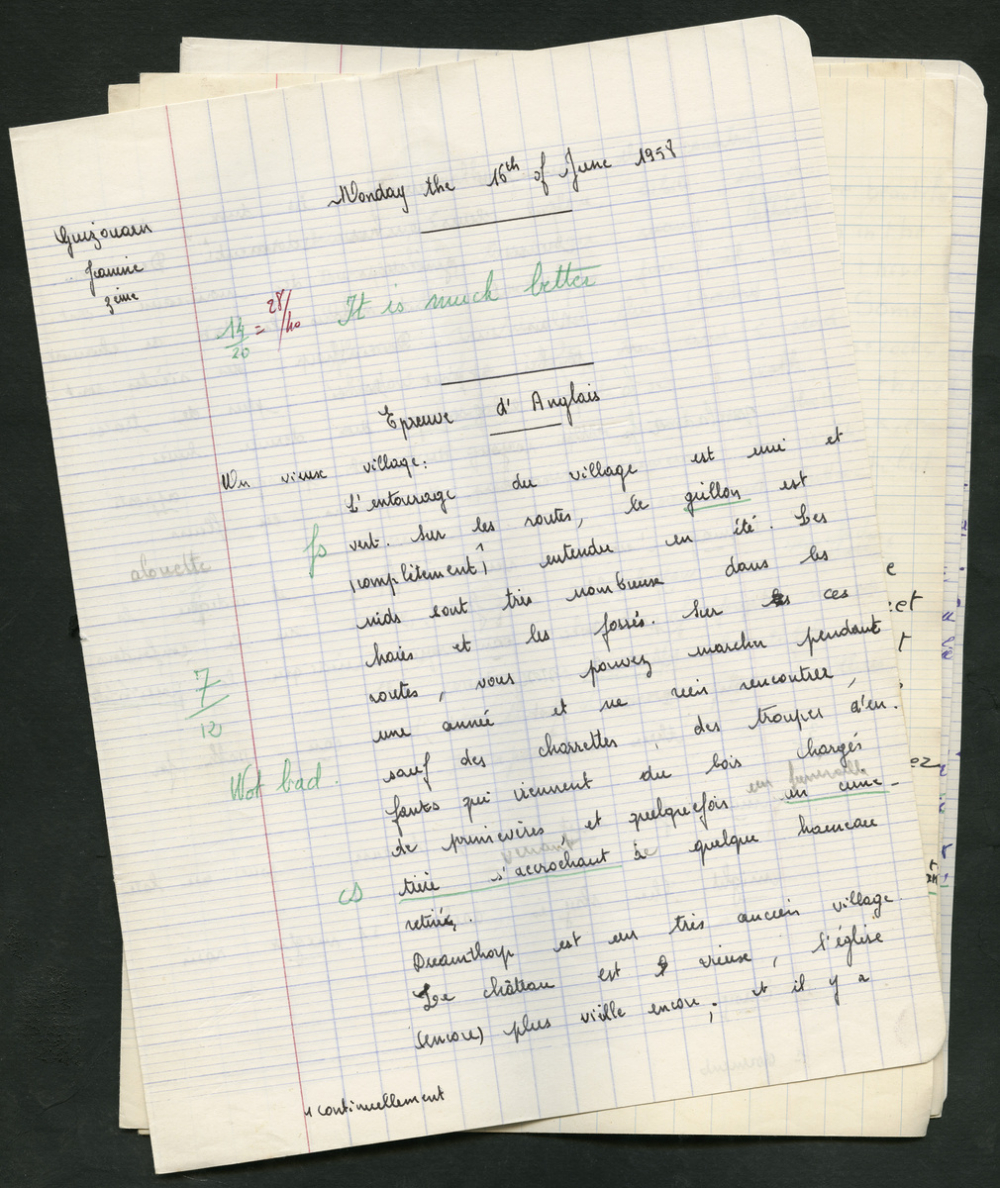 Monday the 16th of June 1958
Guizouarn
Jeanine
3ème
14/20 = 28/40 It is much better
Epreuve d'Anglais
Un vieux village:
L'entourage du village est uni et
fs vert. Sur les routes, le grillon est
(complitement) entendu en été. Les
alouette
nids sont très nombreux dans les
haies et les fossés. Sur les ces
routes, vous pouvez marcher pendant
7/12
une année et ne rien rencontrer,
sauf des charrettes, des troupes d'en-
Not bad.
fants qui viennent du bois chargés
un funeraille
de primevères et quelquefois un cime-
venant
cs tière s'accrochant de quelque hameau
retiré.
Dreamthorp est un très ancien village.
Le château est vieux, l'église
(encore) plus vieille encore; et il y a
continuellement
e
et
ez